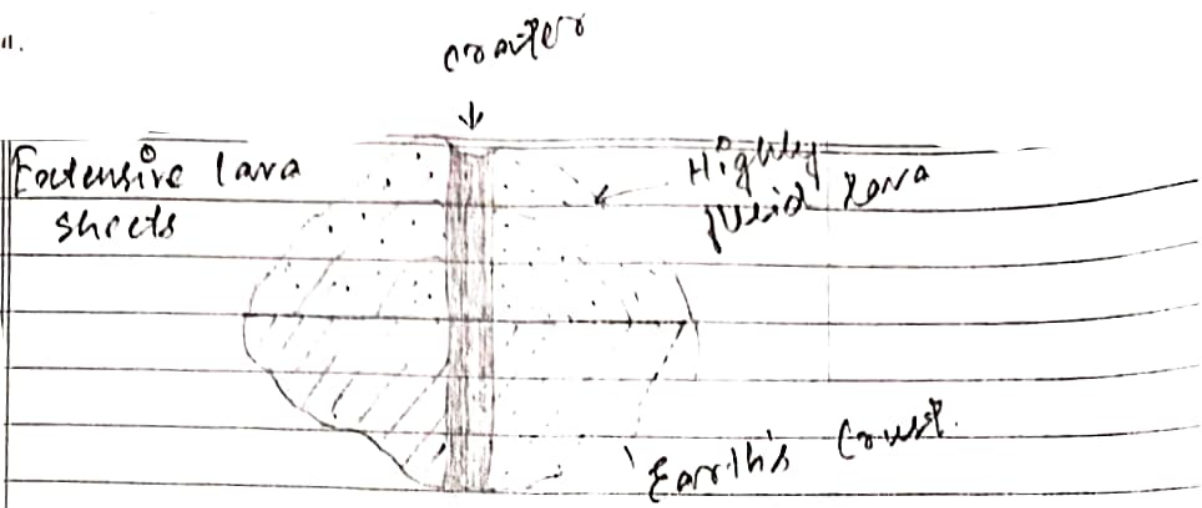 11.
crater
Extensive lava
sheets
Highly
fluid lava
Earth's Crust.